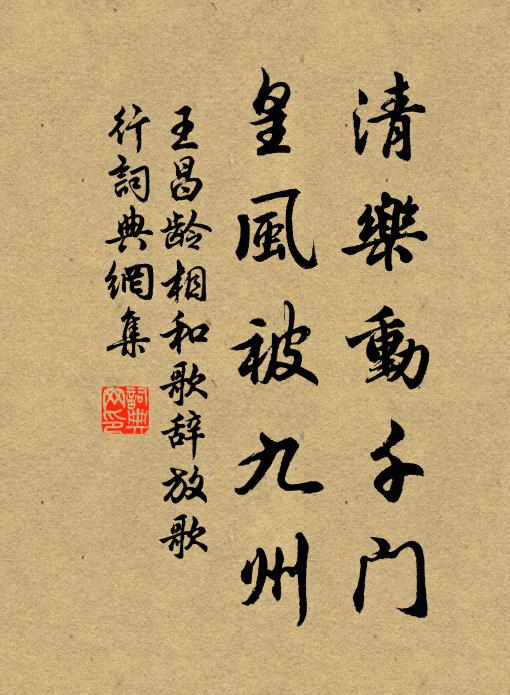 清樂動千门
皇風被九州
王昌龄相和歌辞放歌
行詞典網集
詞典
网印